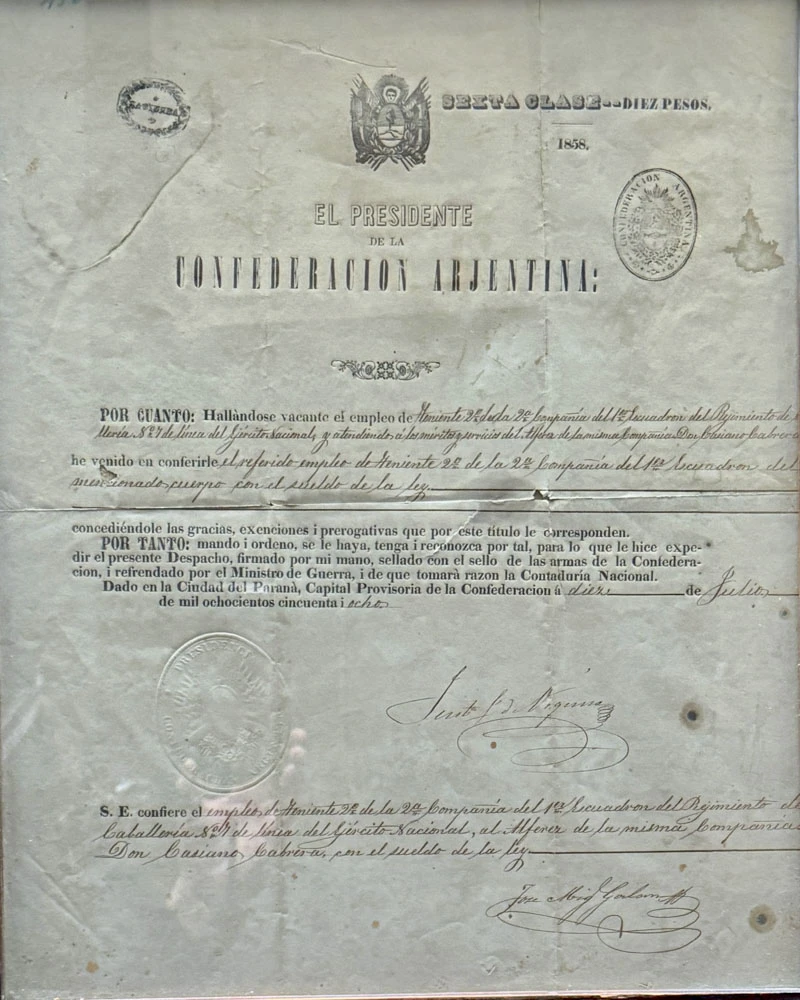 SEXTA CLASE--DIEZ PESOS.
1858.
CONFEDERACION ARGENTINA
EL PRESIDENTE
DE LA
CONFEDERACION ARJENTINA:
POR CUANTO: Hallàndose vacante el empleo de Teniente 2º de la 2ª Compañía del 1er Escuadron del Rejimiento de
llería Nº 7 de línea del Ejército Nacional, y atendiendo á los méritos y servicios del Alferez de la misma Compañía Don Casiano Cabrera
he venido en conferirle el referido empleo de Teniente 2º de la 2ª Compañía del 1er Escuadron del
mencionado cuerpo con el sueldo de la ley
concediéndole las gracias, exenciones i prerogativas que por este titulo le corresponden.
POR TANTO: mando i ordeno, se le haya, tenga i reconozca por tal, para lo que le hice expe-
dir el presente Despacho, firmado por mi mano, sellado con el sello de las armas de la Confedera-
cion, i refrendado por el Ministro de Guerra, i de que tomarà razon la Contaduria Nacional.
Dado en la Ciudad del Paranà, Capital Provisoria de la Confederacion á diez de Julio
de mil ochocientos cincuenta i ocho
PRESIDENCIA
Justo J de Urquiza
S. E. confiere el empleo de Teniente 2º de la 2ª Compañía del 1er Escuadron del Rejimiento de
Caballería Nº 7 de línea del Ejército Nacional, al Alferez de la misma Compañía
Don Casiano Cabrera, con el sueldo de la ley
José Mig Galan